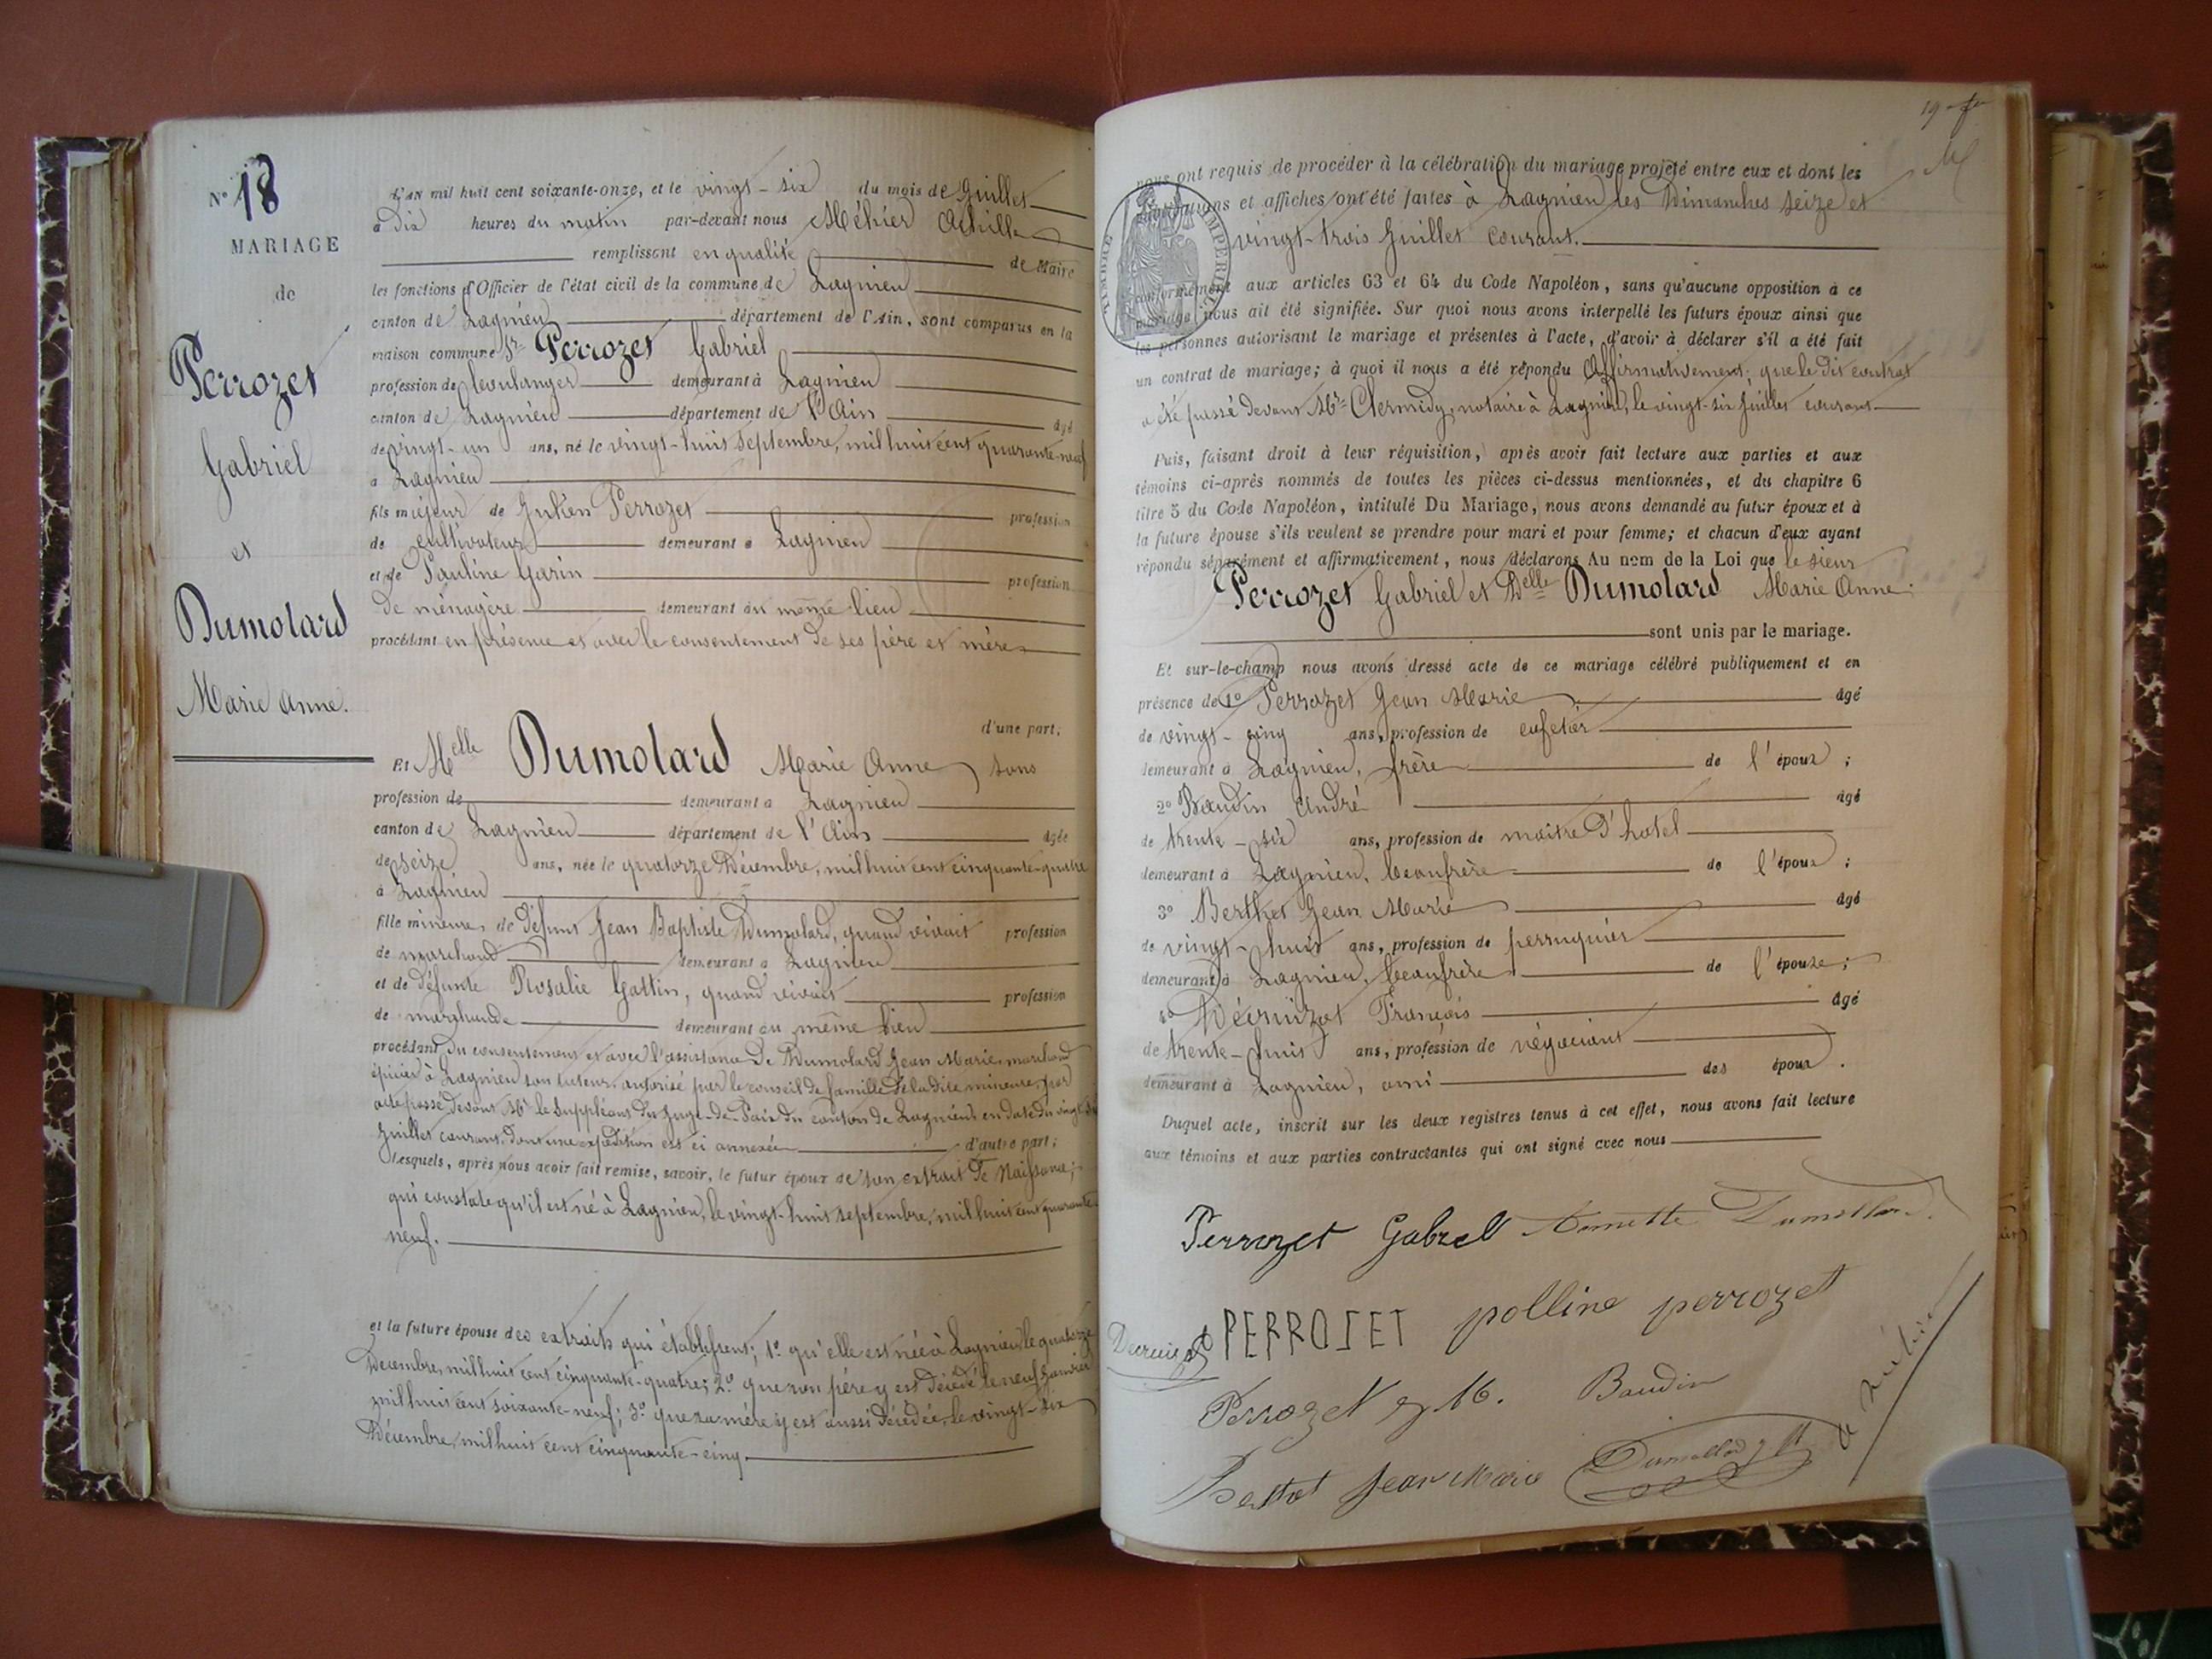 N° 18
MARIAGE
de
Perrozet
Gabriel
et
Dumolard
Marie Anne.
L'AN mil huit cent soixante-onze, et le vingt-six du mois de Juillet
à dix heures du matin par-devant nous Méhier Achille
remplissant en qualité de Maire
les fonctions d'Officier de l'état civil de la commune de Lagnieu
canton de Lagnieu département de l'Ain, sont comparus en la
maison commune Sr Perrozet Gabriel
profession de boulanger demeurant à Lagnieu
canton de Lagnieu département de l'Ain âgé
de vingt-un ans, né le vingt-huit septembre, mil huit cent quarante-neuf
à Lagnieu
fils mineur de Julien Perrozet profession
de cultivateur demeurant à Lagnieu
et de Pauline Garin profession
de ménagère demeurant au même lieu
procédant en présence et avec le consentement de ses père et mère
d'une part;
Et Melle Dumolard Marie Anne, sans
profession de demeurant à Lagnieu
canton de Lagnieu département de l'Ain âgée
de seize ans, née le quatorze Décembre, mil huit cent cinquante-quatre
à Lagnieu
fille mineure, de défunt Jean Baptiste Dumolard, quand vivait profession
de marchand demeurant à Lagnieu
et de défunte Rosalie Gattin, quand vivait profession
de marchande demeurant au même lieu
procédant du consentement et avec l'assistance de Dumolard Jean Marie, marchand
épicier à Lagnieu son tuteur, autorisé par le conseil de famille de la dite mineure, par
acte passé devant Mr le Suppléant du Juge-de-Paix du canton de Lagnieu en date du vingt-
Juillet courant, dont une expédition est ci annexée d'autre part;
Lesquels, après nous avoir fait remise, savoir, le futur époux de son extrait de Naissance;
qui constate qu'il est né à Lagnieu, le vingt-huit septembre, mil huit cent quarante-
neuf.
et la future épouse des extraits qui établissent; 1° qu'elle est née à Lagnieu le quatorze
Décembre, mil huit cent cinquante-quatre; 2° que son père y est décédé le neuf Janvier
mil huit cent soixante-neuf; 3° que sa mère y est aussi décédée, le vingt-six
Décembre, mil huit cent cinquante-cinq.
19
nous ont requis de procéder à la célébration du mariage projeté entre eux et dont les
publications et affiches ont été faites à Lagnieu les Dimanches seize et
vingt-trois Juillet courant.
TIMBRE IMPERIAL
conformément aux articles 63 et 64 du Code Napoléon, sans qu'aucune opposition à ce
mariage nous ait été signifiée. Sur quoi nous avons interpellé les futurs époux ainsi que
les personnes autorisant le mariage et présentes à l'acte, d'avoir à déclarer s'il a été fait
un contrat de mariage; à quoi il nous a été répondu Affirmativement; que le dit contrat
a été passé devant Mr Chermidy, notaire à Lagnieu, le vingt-six Juillet courant
Puis, faisant droit à leur réquisition, après avoir fait lecture aux parties et aux
témoins ci-après nommés de toutes les pièces ci-dessus mentionnées, et du chapitre 6
titre 5 du Code Napoléon, intitulé Du Mariage, nous avons demandé au futur époux et à
la future épouse s'ils veulent se prendre pour mari et pour femme; et chacun d'eux ayant
répondu séparément et affirmativement, nous déclarons Au nom de la Loi que le sieur
Perrozet Gabriel et Delle Dumolard Marie Anne;
sont unis par le mariage.
Et sur-le-champ nous avons dressé acte de ce mariage célébré publiquement et en
présence de 1° Perrozet Jean Marie âgé
de vingt-cinq ans, profession de cafetier
demeurant à Lagnieu, frère de l'époux;
2° Baudin André âgé
de trente-six ans, profession de maître d'hotel
demeurant à Lagnieu, beaufrère de l'époux;
3° Berthet Jean Marie âgé
de vingt-huit ans, profession de perruquier
demeurant à Lagnieu, beaufrère de l'épouse;
4° Décruizat François âgé
de trente-huit ans, profession de négociant
demeurant à Lagnieu, ami des époux.
Duquel acte, inscrit sur les deux registres tenus à cet effet, nous avons fait lecture
aux témoins et aux parties contractantes qui ont signé avec nous
Perrozet Gabrel Annette Dumollard
PERROZET polline perrozet
Perrozet J M. Baudin
Berthet Jean Marie Dumollard J M